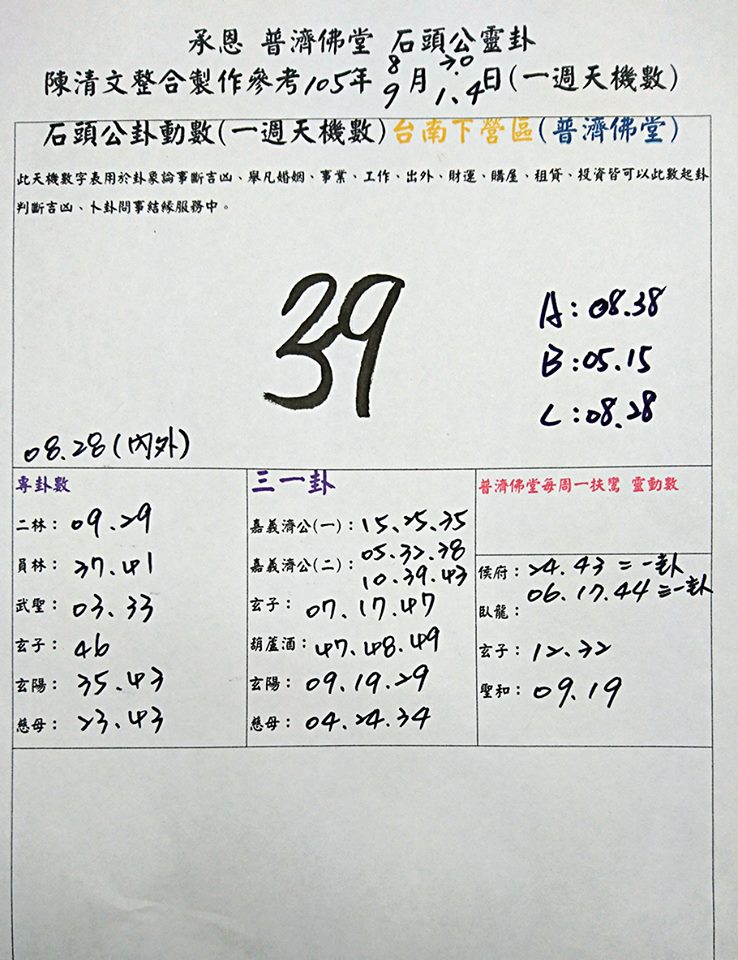 承恩 普濟佛堂 石頭公靈卦
陳清文整合製作參考105年8月30日(一週天機數)
9 1、4
石頭公卦動數(一週天機數)台南下營區(普濟佛堂)
此天機數字表用於卦象論事斷吉凶、舉凡婚姻、事業、工作、出外、財運、購屋、租賃、投資皆可以此數起卦
判斷吉凶、卜卦問事結緣服務中。
39
A:08.38
B:05.15
C:08.28
08.28(內外)
專卦數
二林: 09.29
員林: 37.41
武聖: 03.33
玄子: 46
玄陽: 35.43
慈母: 23.43
三一卦
嘉義濟公(一): 15.25.35
嘉義濟公(二): 05.32.38
10.39.43
玄子: 07.17.47
葫蘆酒: 47.48.49
玄陽: 09.19.29
慈母: 04.24.34
普濟佛堂每周一扶鸞 靈動數
侯府: 24.43 二一卦
06.17.44 三一卦
臥龍:
玄子: 12.32
聖和: 09.19